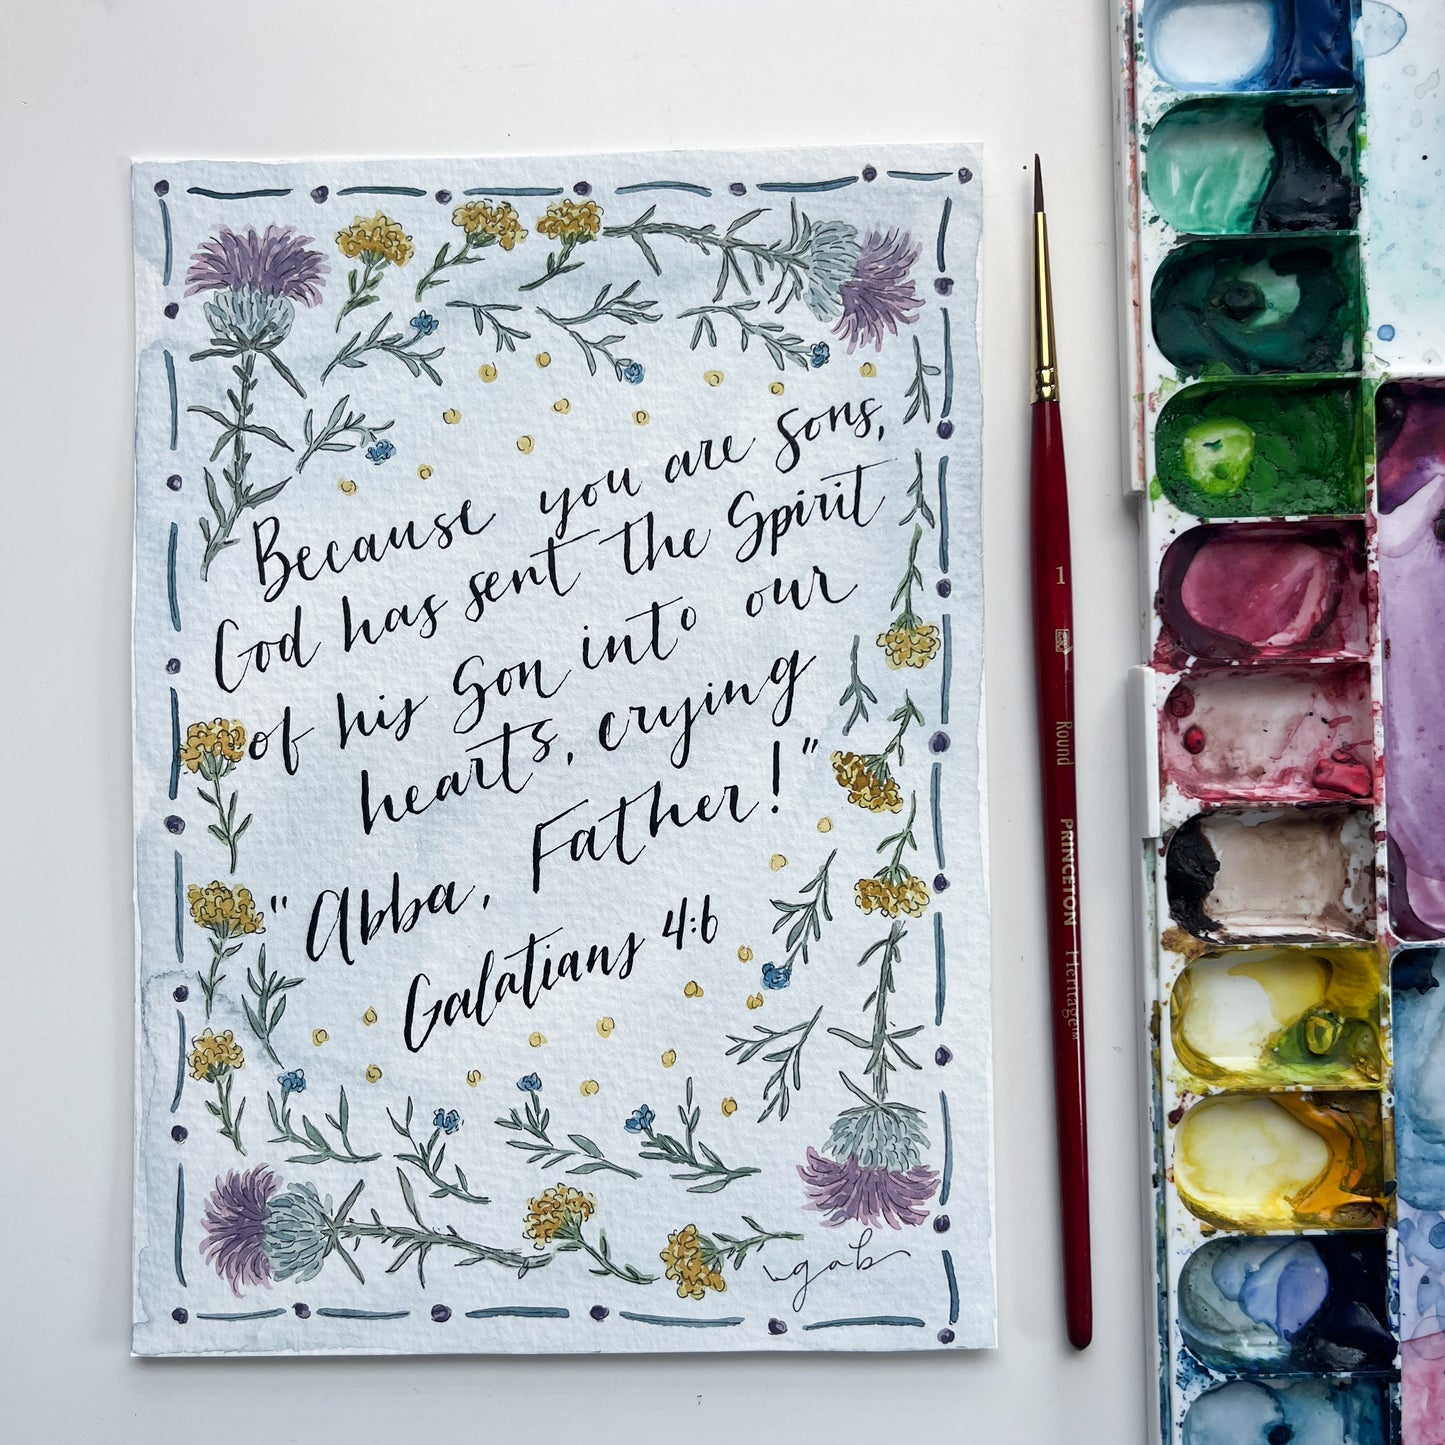 Because you are sons,
God has sent the Spirit
of his Son into our
hearts, crying
"Abba, Father!"
Galatians 4:6
gab
1
Round
PRINCETON Heritage™